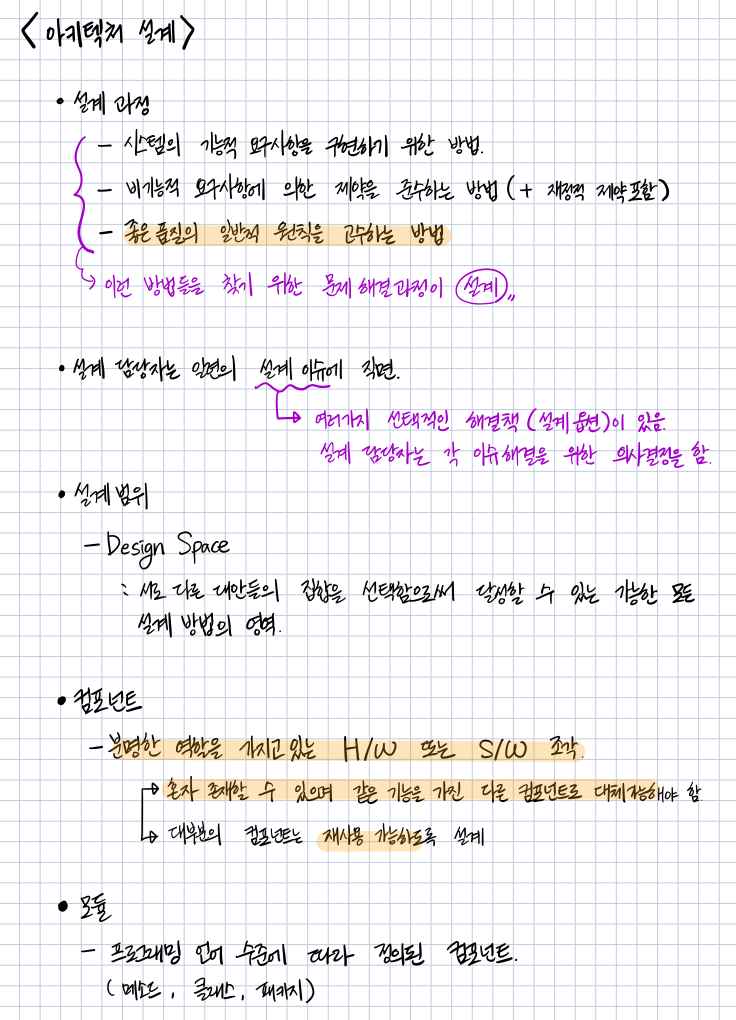 <아키텍처 설계>
• 설계 과정
- 시스템의 기능적 요구사항을 구현하기 위한 방법.
- 비기능적 요구사항에 의한 제약을 준수하는 방법 (+ 재정적 제약 포함)
- 좋은 품질의 일반적 원칙을 고수하는 방법
↳ 이런 방법들을 찾기 위한 문제 해결과정이 설계〃
• 설계 담당자는 일련의 설계 이슈에 직면.
↳ 여러가지 선택적인 해결책 (설계 옵션)이 있음.
설계 담당자는 각 이슈해결을 위한 의사결정을 함.
• 설계 범위
- Design Space
: 서로 다른 대안들의 집합을 선택함으로써 달성할 수 있는 가능한 모든
설계 방법의 영역.
• 컴포넌트
- 분명한 역할을 가지고 있는 H/W 또는 S/W 조각.
↳ 혼자 존재할 수 있으며 같은 기능을 가진 다른 컴포넌트로 대체가능해야 함.
↳ 대부분의 컴포넌트는 재사용 가능하도록 설계
• 모듈
- 프로그래밍 언어 수준에 따라 정의된 컴포넌트.
(메소드, 클래스, 패키지)